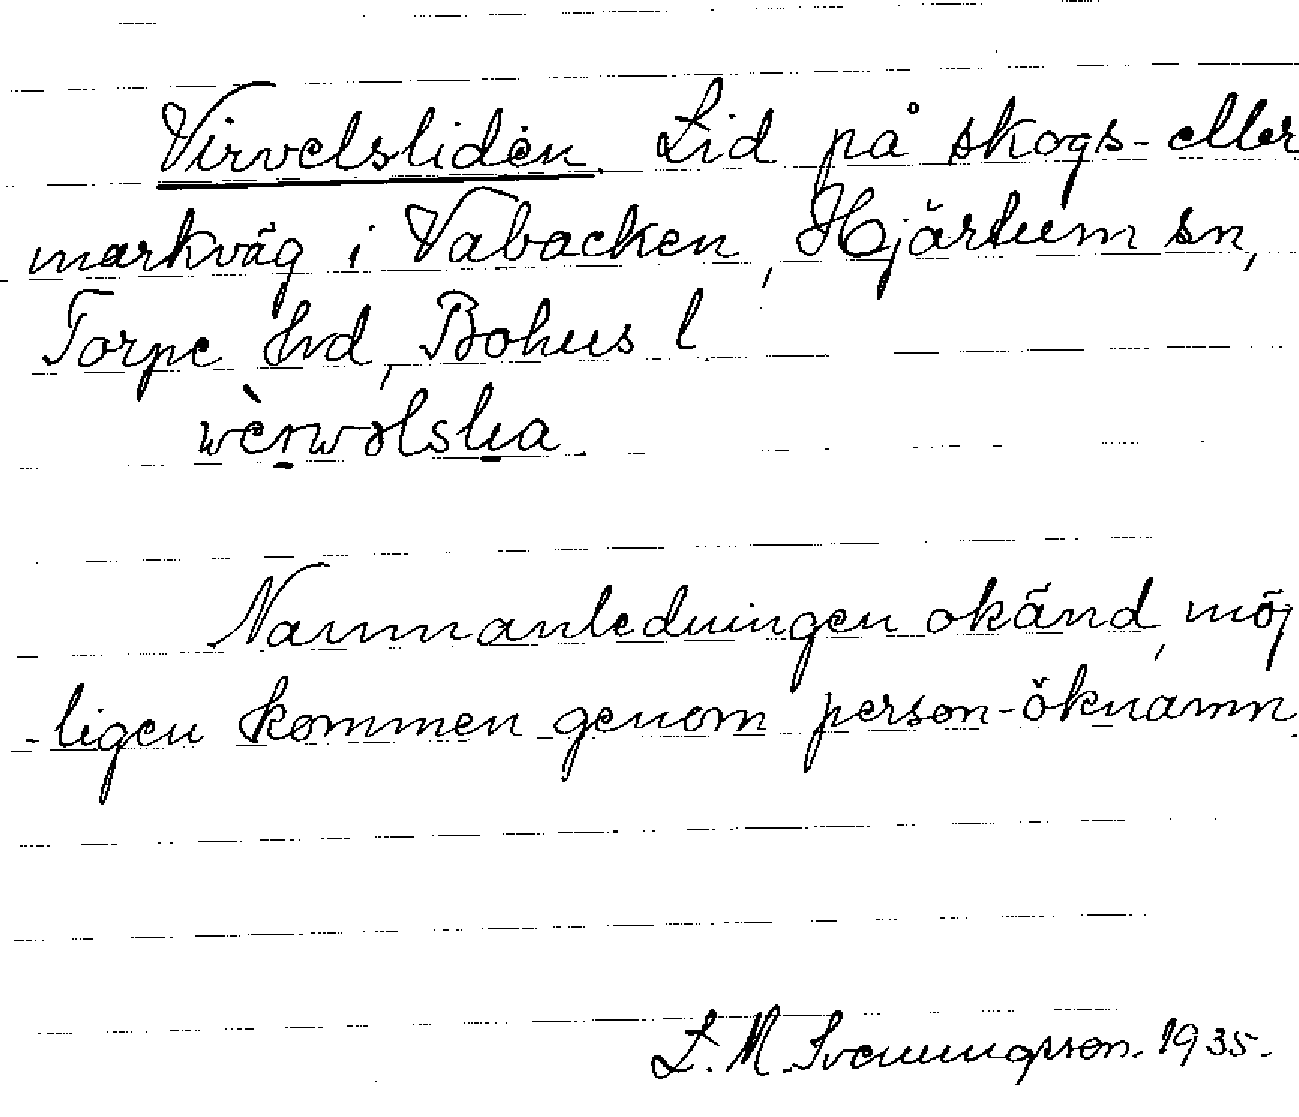 Virvelsliden. Lid på skogs- eller
markväg i Vabacken, Hjärtum sn,
Torpe hd, Bohus l
wèrwəlslia.
Namnanledningen okänd, möj
-ligen kommen genom person-öknamn.
L. M. Svenningsson. 1935.